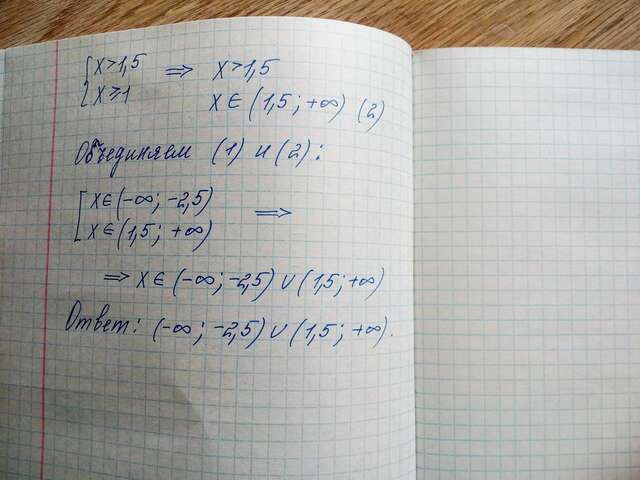 { x > 1,5 ⇒ x > 1,5
x ≥ 1 x ∈ (1,5; +∞) (2)
Объединяем (1) и (2):
[ x ∈ (-∞; -2,5)
x ∈ (1,5; +∞) ⇒
⇒ x ∈ (-∞; -2,5) ∪ (1,5; +∞)
Ответ: (-∞; -2,5) ∪ (1,5; +∞).